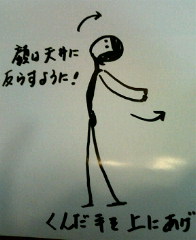 顔は天井に
反らすように！
くんだ手を上にあげ